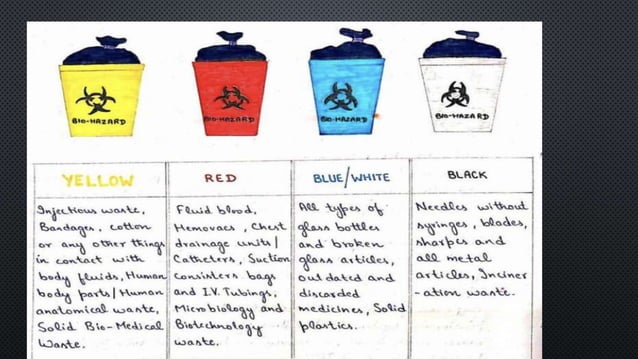 BIO-HAZARD
BIO-HAZARD
BIO-HAZARD
BIO-HAZARD
YELLOW
Injectious waste,
Bandages, cotton
or any other things
in contact with
body fluids, Human
body parts/Human
anatomical waste,
Solid Bio-Medical
Waste.
RED
Fluid blood,
Hemovacs, Chest
drainage units/
Catheters, Suction
consisters bags
and I.V. Tubings,
Microbiology and
Biotechnology
waste.
BLUE/WHITE
All types of
glass bottles
and broken
glass articles,
outdated and
discarded
medicines, Solid
plastics.
BLACK
Needles without
syringes, blades,
sharpes and
all metal
articles, Inciner
-ation waste.